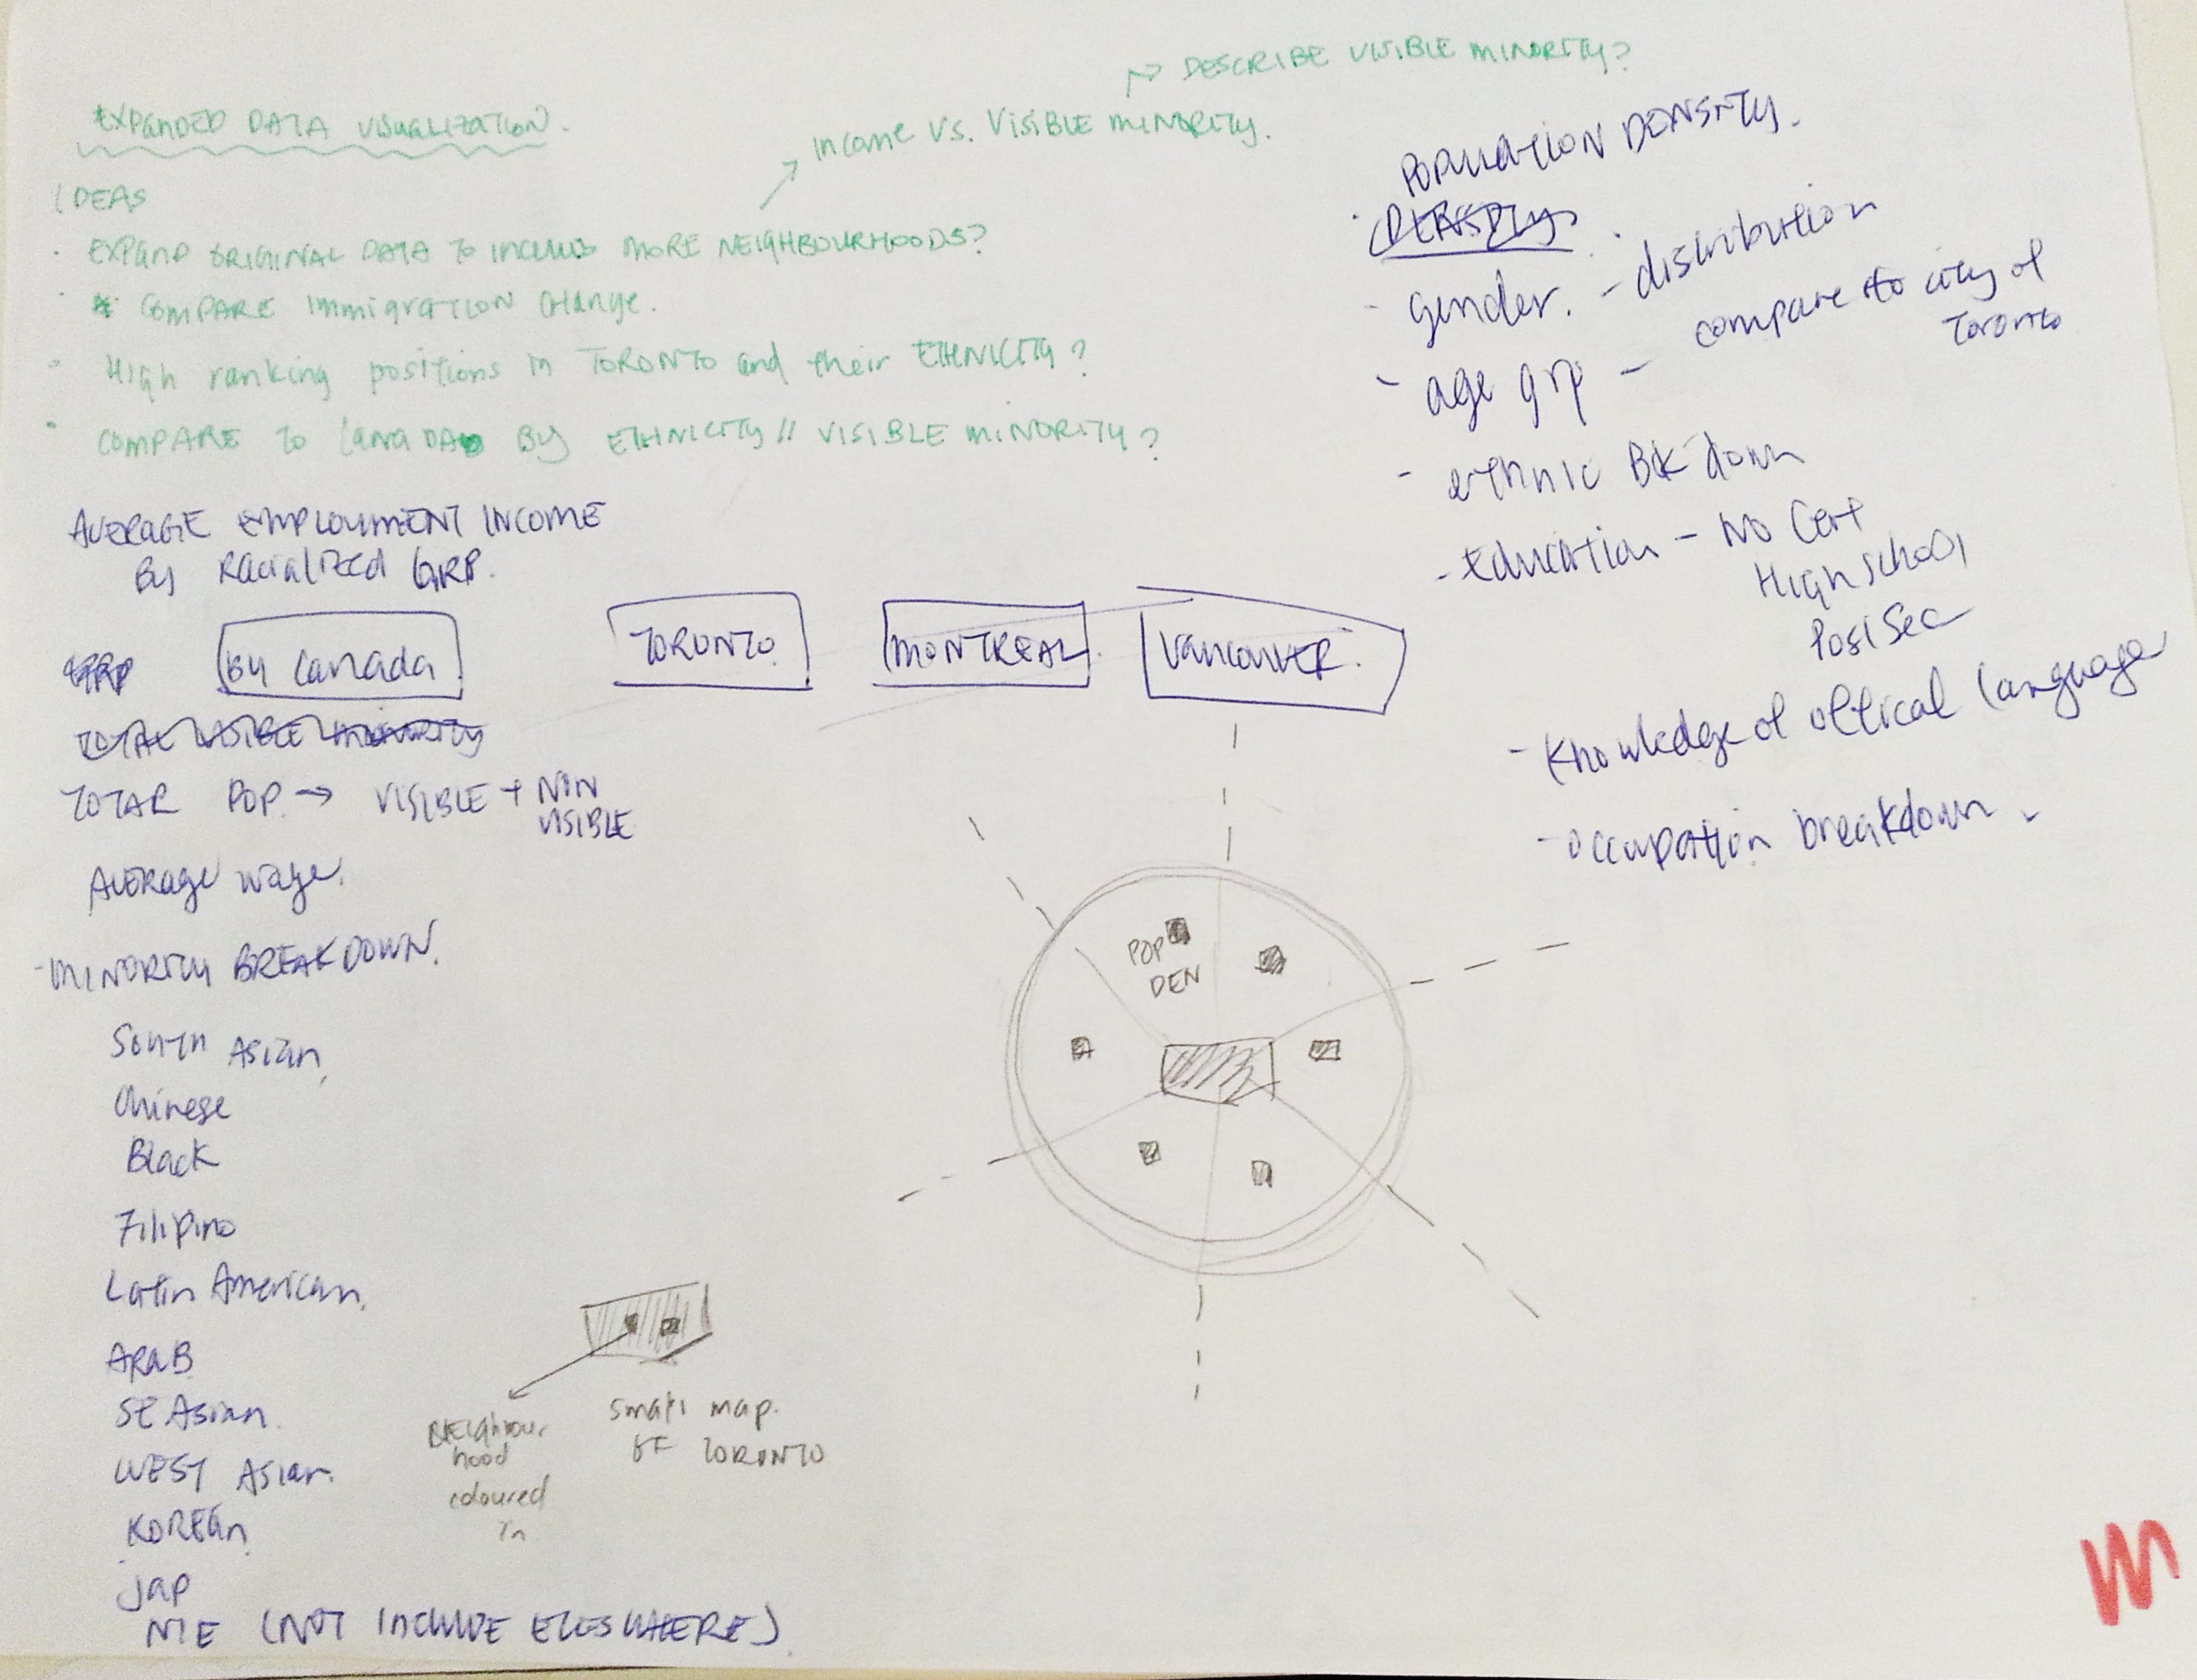 EXPANDED DATA VISUALIZATION.
IDEAS
· EXPAND ORIGINAL DATA TO INCLUDE MORE NEIGHBOURHOODS?
Income VS. VISIBLE MINORITY.
DESCRIBE VISIBLE MINORITY?
· * COMPARE Immigration Change.
· High ranking positions in TORONTO and their ETHNICITY?
· COMPARE TO CANADA BY ETHNICITY // VISIBLE MINORITY?
AVERAGE EMPLOYMENT INCOME
By Racialized GRP.
GRP
By Canada
TORONTO
MONTREAL.
VANCOUVER.
TOTAL VISIBLE MINORITY
TOTAL POP. → VISIBLE + NON
VISIBLE
AVERAGE wage.
- MINORITY BREAKDOWN.
South Asian,
Chinese
Black
Filipino
Latin American.
ARAB
SE Asian.
WEST Asian.
KOREAN
Jap
NIE (NOT INCLUDE ELESWHERE)
POPULATION DENSITY.
- gender. - distribution
- age grp - compare to city of
Toronto
- ethnic BKdown
- Education - No Cert
High school
PostSec
- Knowledge of offical language
- occupation breakdown.
POP
DEN
Neighbour
hood
coloured
in
small map.
OF TORONTO